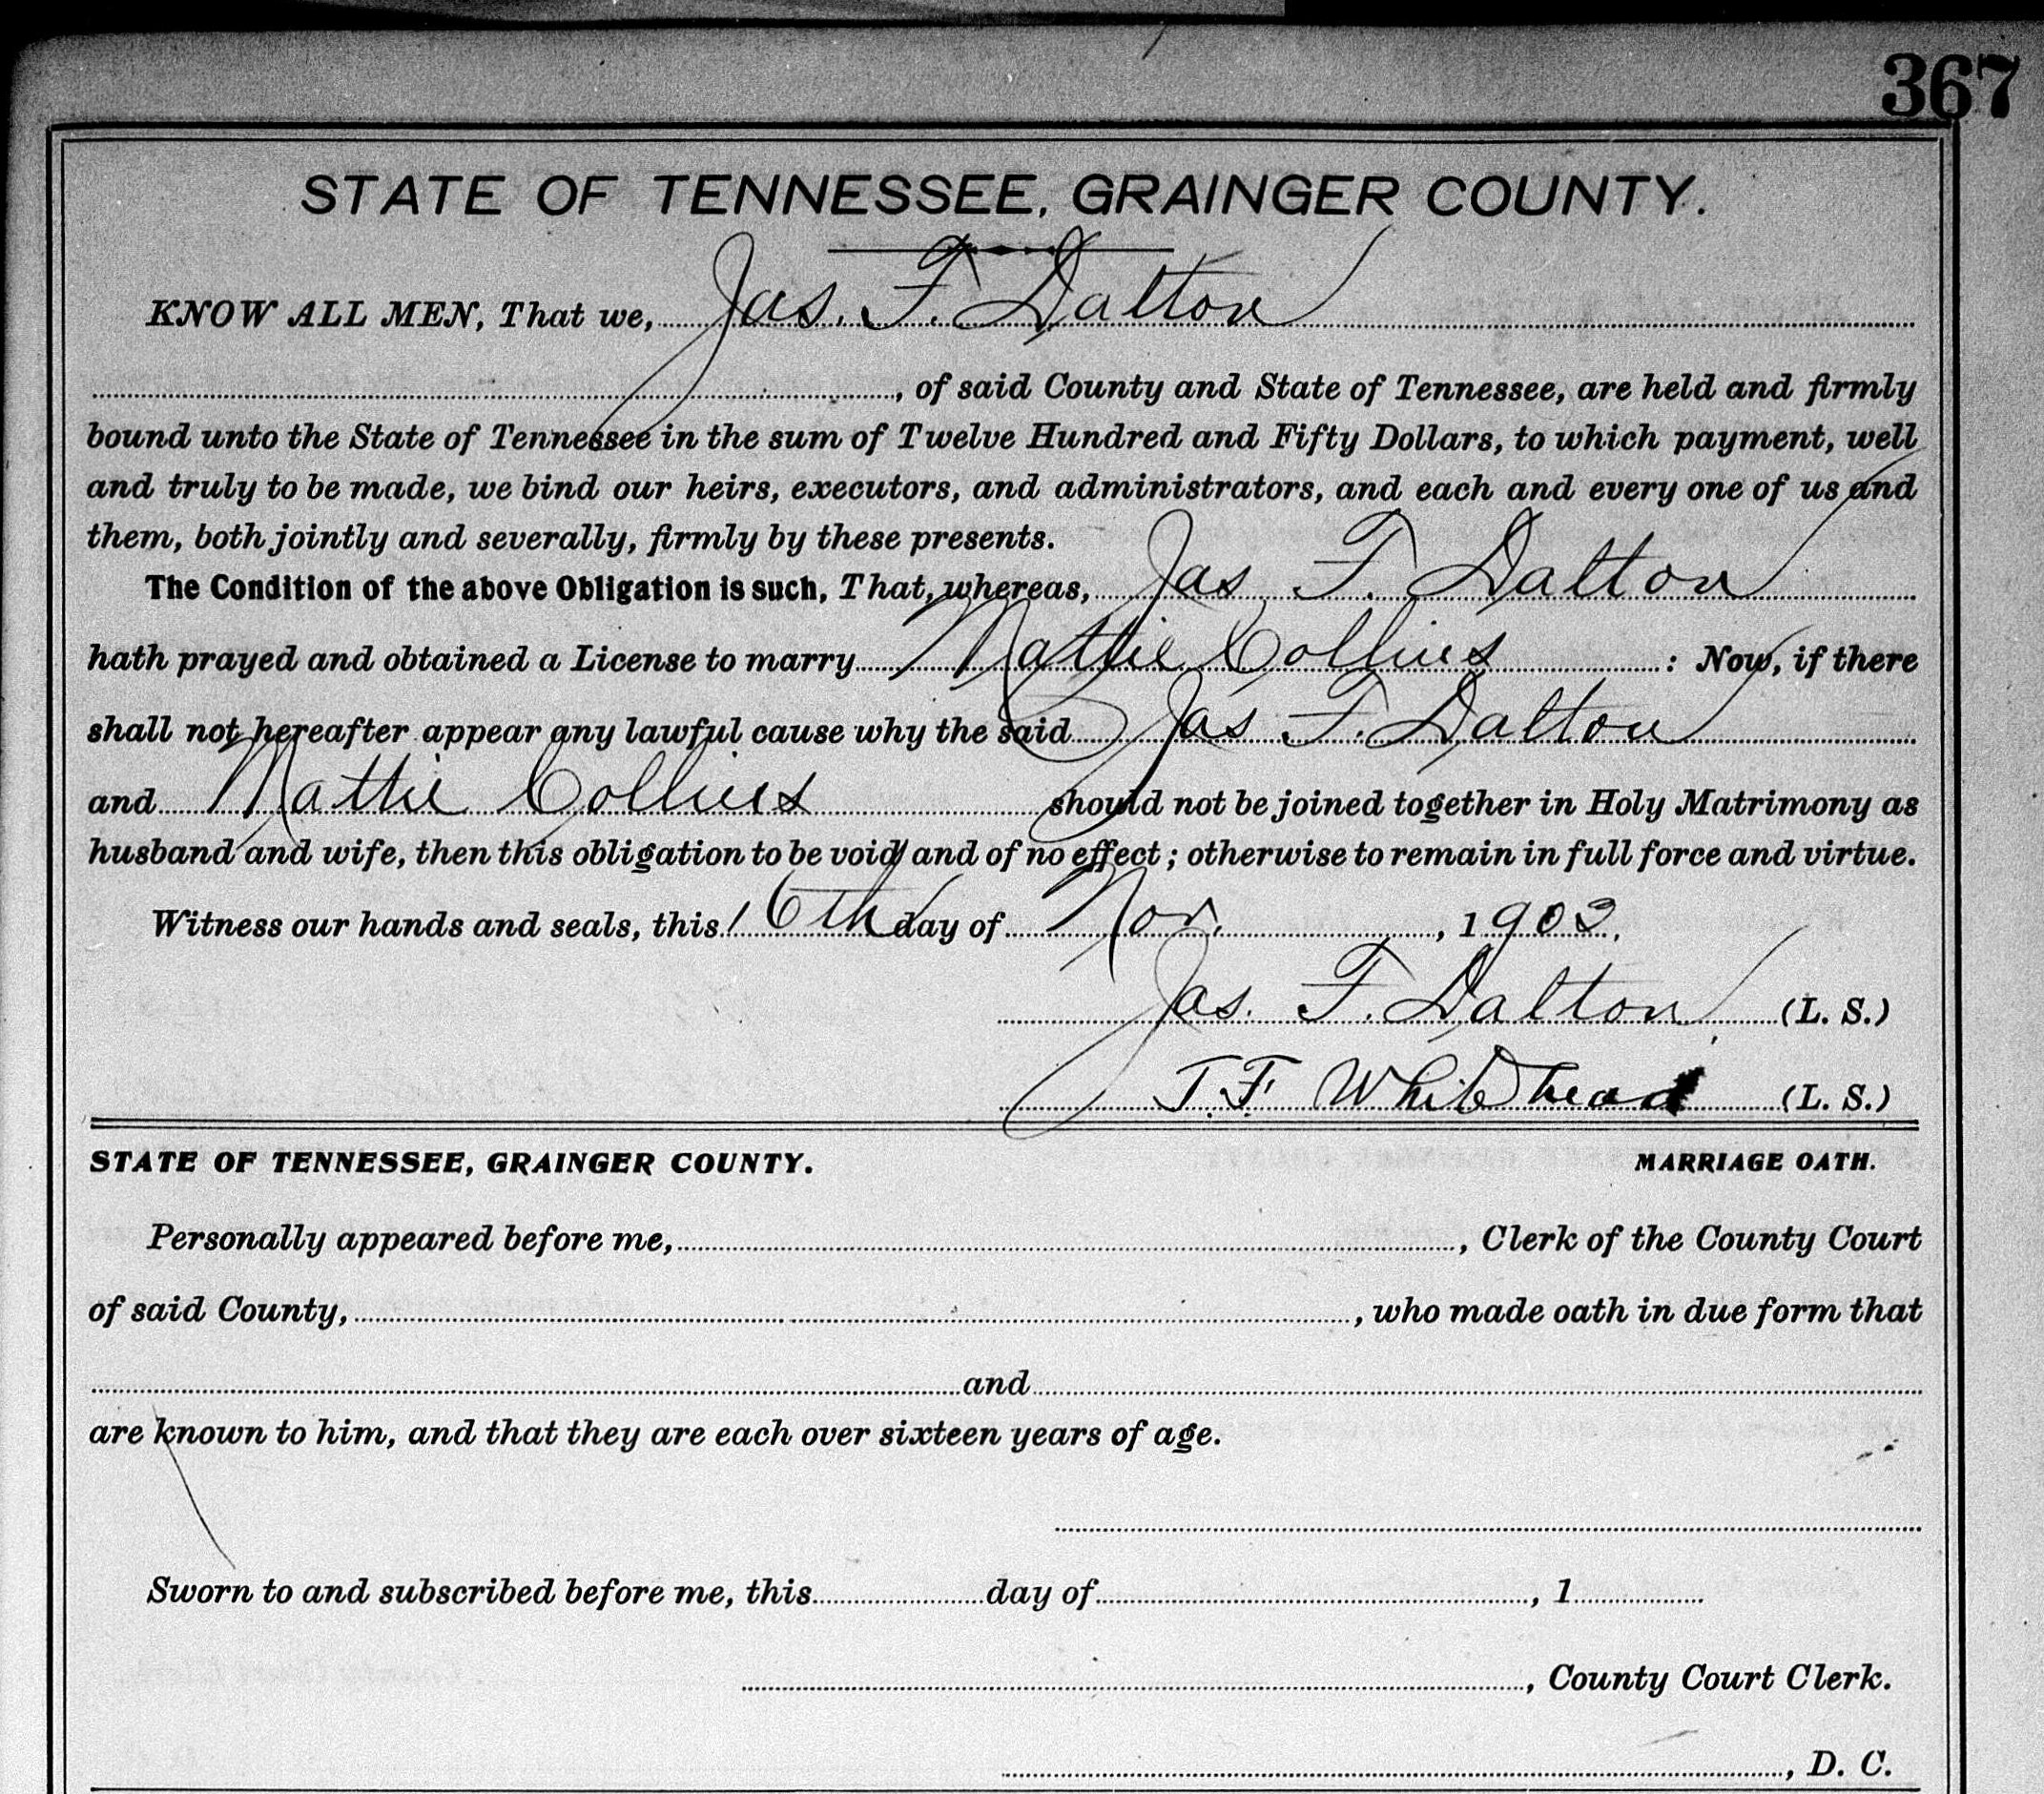 367
STATE OF TENNESSEE, GRAINGER COUNTY.
KNOW ALL MEN, That we, Jas. F. Dalton
, of said County and State of Tennessee, are held and firmly
bound unto the State of Tennessee in the sum of Twelve Hundred and Fifty Dollars, to which payment, well
and truly to be made, we bind our heirs, executors, and administrators, and each and every one of us and
them, both jointly and severally, firmly by these presents.
The Condition of the above Obligation is such, That, whereas, Jas F. Dalton
hath prayed and obtained a License to marry Mattie Collins : Now, if there
shall not hereafter appear any lawful cause why the said Jas F. Dalton
and Mattie Collins should not be joined together in Holy Matrimony as
husband and wife, then this obligation to be void and of no effect; otherwise to remain in full force and virtue.
Witness our hands and seals, this 16th day of Nov. , 1903.
Jas. F. Dalton (L. S.)
T. F. Whitehead (L. S.)
STATE OF TENNESSEE, GRAINGER COUNTY. MARRIAGE OATH.
Personally appeared before me, , Clerk of the County Court
of said County, , who made oath in due form that
and
are known to him, and that they are each over sixteen years of age.
Sworn to and subscribed before me, this day of , 1
, County Court Clerk.
, D. C.